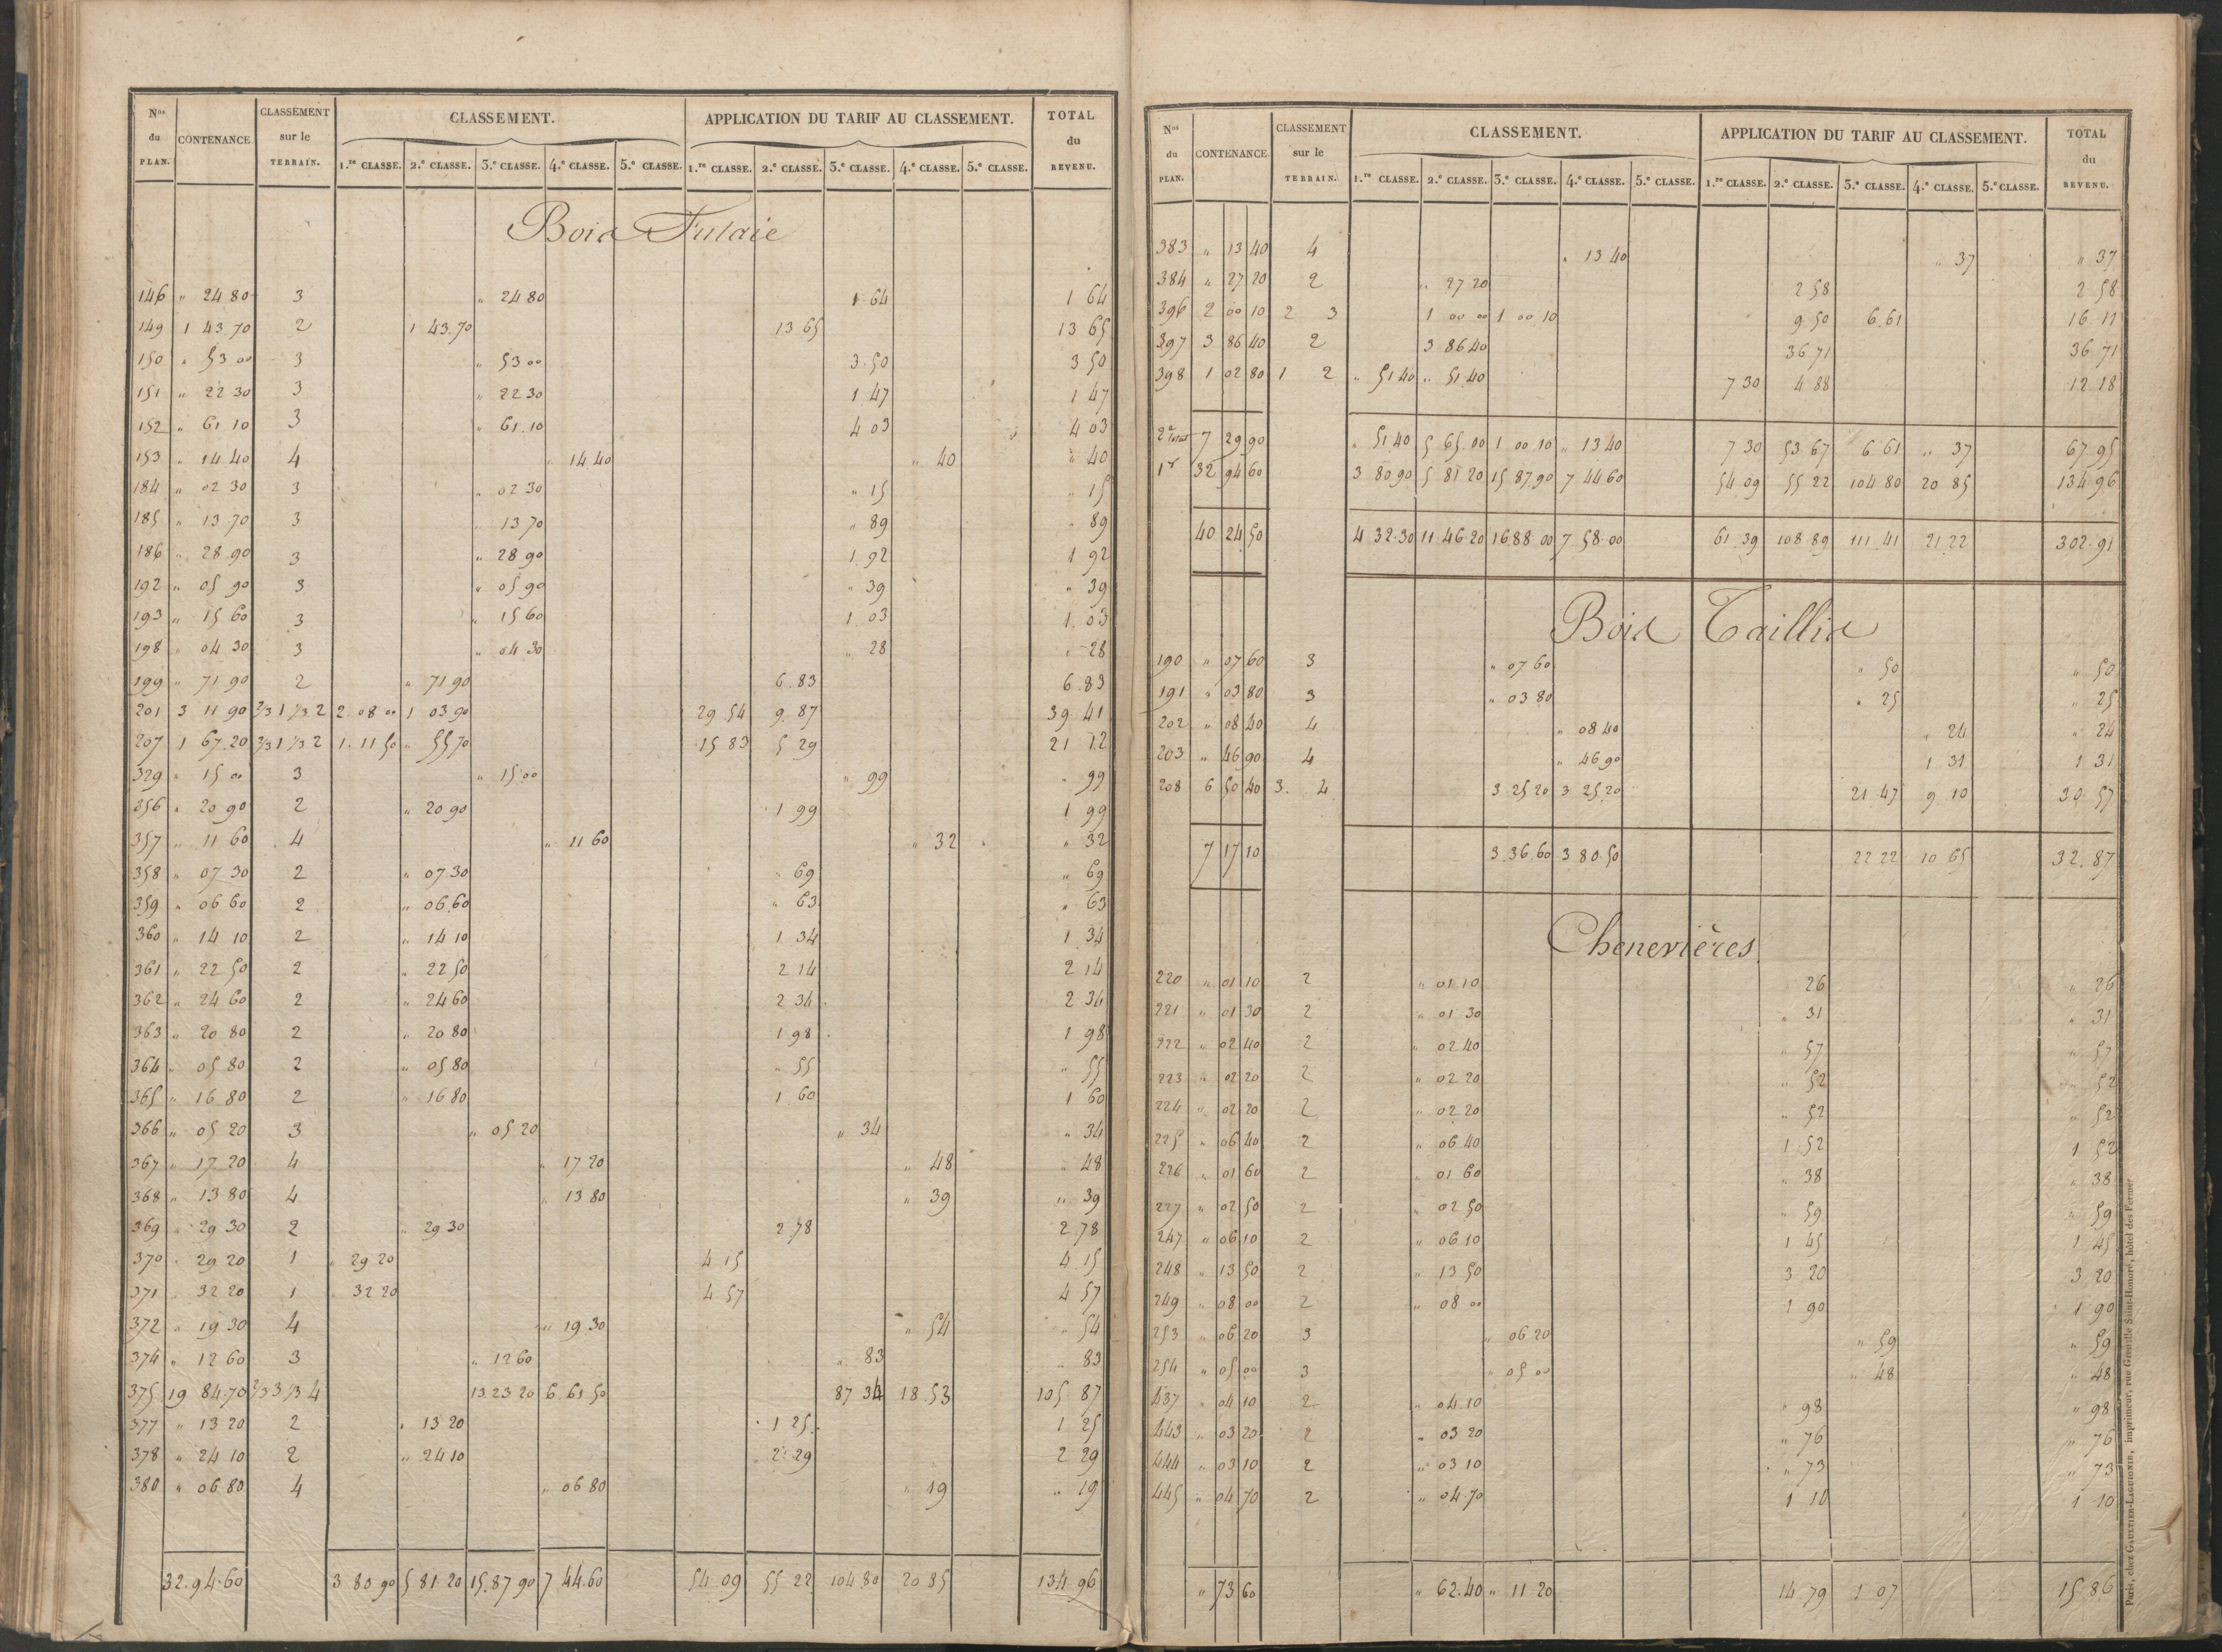 Nos du PLAN. CONTENANCE. CLASSEMENT sur le TERRAIN. CLASSEMENT. APPLICATION DU TARIF AU CLASSEMENT. TOTAL du REVENU.
1.re CLASSE. 2.e CLASSE. 3.e CLASSE. 4.e CLASSE. 5.e CLASSE. 1.re CLASSE. 2.e CLASSE. 3.e CLASSE. 4.e CLASSE. 5.e CLASSE.
Bois Futaie
146 " 24 80 3 " 24 80 1 64 1 64
149 1 43 70 2 1 43 70 13 65 13 65
150 " 53 00 3 " 53 00 3 50 3 50
151 " 22 30 3 " 22 30 1 47 1 47
152 " 61 10 3 " 61 10 4 03 4 03
153 " 14 40 4 " 14 40 " 40 " 40
184 " 02 30 3 " 02 30 " 15 " 15
185 " 13 70 3 " 13 70 " 89 " 89
186 " 28 90 3 " 28 90 1 92 1 92
192 " 05 90 3 " 05 90 " 39 " 39
193 " 15 60 3 " 15 60 1 03 1 03
198 " 04 30 3 " 04 30 " 28 " 28
199 " 71 90 2 " 71 90 6 83 6 83
201 3 11 90 2/3 1 1/3 2 2 08 00 1 03 90 29 54 9 87 39 41
207 1 67 20 2/3 1 1/3 2 1 11 50 " 55 70 15 83 5 29 21 12
329 " 15 00 3 " 15 00 " 99 " 99
356 " 20 90 2 " 20 90 1 99 1 99
357 " 11 60 4 " 11 60 " 32 " 32
358 " 07 30 2 " 07 30 " 69 " 69
359 " 06 60 2 " 06 60 " 63 " 63
360 " 14 10 2 " 14 10 1 34 1 34
361 " 22 50 2 " 22 50 2 14 2 14
362 " 24 60 2 " 24 60 2 34 2 34
363 " 20 80 2 " 20 80 1 98 1 98
364 " 05 80 2 " 05 80 " 55 " 55
365 " 16 80 2 " 16 80 1 60 1 60
366 " 05 20 3 " 05 20 " 34 " 34
367 " 17 20 4 " 17 20 " 48 " 48
368 " 13 80 4 " 13 80 " 39 " 39
369 " 29 30 2 " 29 30 2 78 2 78
370 " 29 20 1 " 29 20 4 15 4 15
371 " 32 20 1 " 32 20 4 57 4 57
372 " 19 30 4 " 19 30 " 54 " 54
374 " 12 60 3 " 12 60 " 83 " 83
375 19 84 70 2/3 3 1/3 4 13 23 20 6 61 50 87 34 18 53 105 87
377 " 13 20 2 " 13 20 1 25 1 25
378 " 24 10 2 " 24 10 2 29 2 29
380 " 06 80 4 " 06 80 " 19 " 19
32 94 60 3 80 90 5 81 20 15 87 90 7 44 60 54 09 55 22 104 80 20 85 134 96
Nos du PLAN. CONTENANCE. CLASSEMENT sur le TERRAIN. CLASSEMENT. APPLICATION DU TARIF AU CLASSEMENT. TOTAL du REVENU.
1.re CLASSE. 2.e CLASSE. 3.e CLASSE. 4.e CLASSE. 5.e CLASSE. 1.re CLASSE. 2.e CLASSE. 3.e CLASSE. 4.e CLASSE. 5.e CLASSE.
383 " 13 40 4 " 13 40 " 37 " 37
384 " 27 20 2 " 27 20 2 58 2 58
396 2 00 10 2 3 1 00 00 1 00 10 9 50 6 61 16 11
397 3 86 40 2 3 86 40 36 71 36 71
398 1 02 80 1 2 " 51 40 " 51 40 7 30 4 88 12 18
2e total 7 29 90 " 51 40 5 65 00 1 00 10 " 13 40 7 30 53 67 6 61 " 37 67 95
1r 32 94 60 3 80 90 5 81 20 15 87 90 7 44 60 54 09 55 22 104 80 20 85 134 96
40 24 50 4 32 30 11 46 20 16 88 00 7 58 00 61 39 108 89 111 41 21 22 302 91
Bois Taillis
190 " 07 60 3 " 07 60 " 50 " 50
191 " 03 80 3 " 03 80 " 25 " 25
202 " 08 40 4 " 08 40 " 24 " 24
203 " 46 90 4 " 46 90 1 31 1 31
208 6 50 40 3 4 3 25 20 3 25 20 21 47 9 10 30 57
7 17 10 3 36 60 3 80 50 22 22 10 65 32 87
Chenevières
220 " 01 10 2 " 01 10 26 " 26
221 " 01 30 2 " 01 30 " 31 " 31
222 " 02 40 2 " 02 40 " 57 " 57
223 " 02 20 2 " 02 20 " 52 " 52
224 " 02 20 2 " 02 20 " 52 " 52
225 " 06 40 2 " 06 40 1 52 1 52
226 " 01 60 2 " 01 60 " 38 " 38
227 " 02 50 2 " 02 50 " 59 " 59
247 " 06 10 2 " 06 10 1 45 1 45
248 " 13 50 2 " 13 50 3 20 3 20
249 " 08 00 2 " 08 00 1 90 1 90
253 " 06 20 3 " 06 20 " 59 " 59
254 " 05 00 3 " 05 00 " 48 " 48
437 " 04 10 2 " 04 10 " 98 " 98
443 " 03 20 2 " 03 20 " 76 " 76
444 " 03 10 2 " 03 10 " 73 " 73
445 " 04 70 2 " 04 70 1 10 1 10
" 73 60 " 62 40 " 11 20 14 79 1 07 15 86
Paris, chez GAULTIER-LAGUIONIE, imprimeur, rue Grenelle Saint-Honoré, hôtel des Fermes